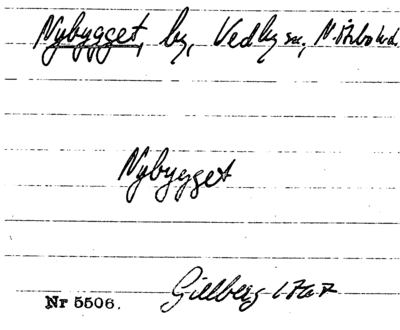 Nybygget, by, Vedby sn, N. Åsbo hd
Nybygget
Gillberg 1767
Nr 5506.